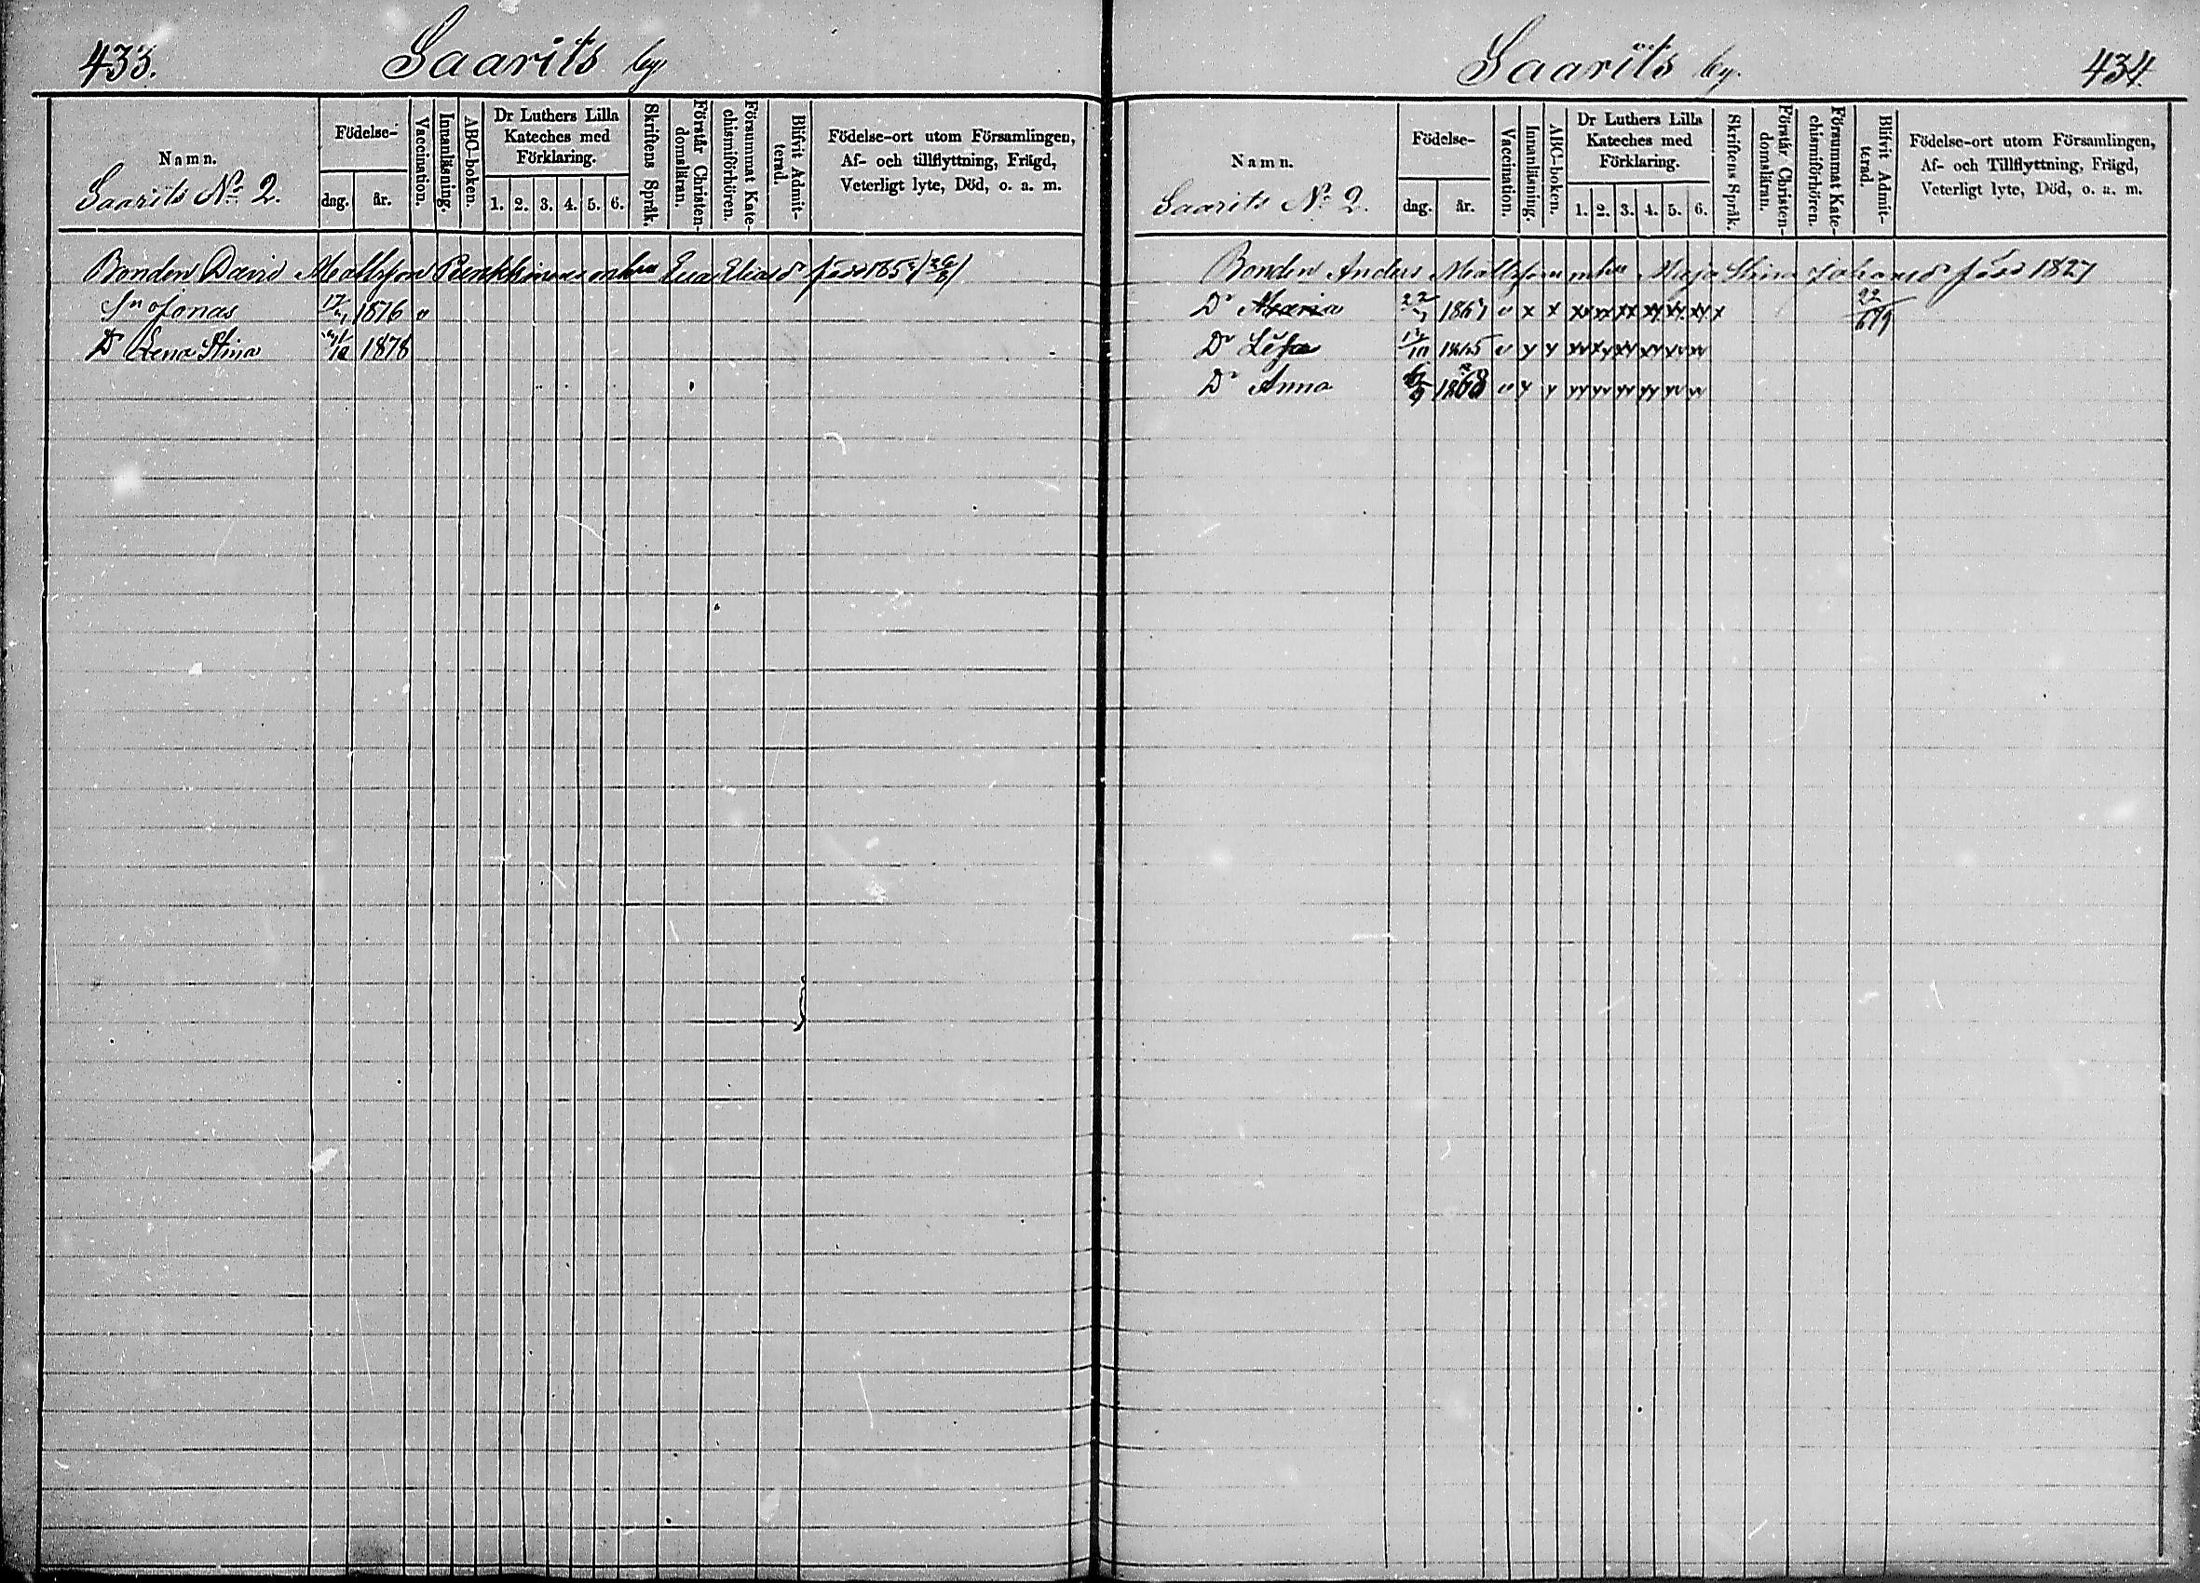 433. Saarits by.
Namn.
Saarits No 2.
Födelse-
dag. år.
Vaccination.
Innanläsning.
ABC-boken.
Dr Luthers Lilla
Kateches med
Förklaring.
1. 2. 3. 4. 5. 6.
Skriftens Språk.
Förstår Christen-
domsläran.
Försummat Kate-
chismiförhören.
Blifvit Admit-
terad.
Födelse-ort utom Församlingen,
Af- och tillflyttning, Frägd,
Veterligt lyte, Död, o. a. m.
Bonden David Mattsson Elias dr
Sn Jonas 1876 "
Dr Lena Stina 1878
Saarits by. 434
Namn.
Saarits No 2.
Födelse-
dag. år.
Vaccination.
Innanläsning.
ABC-boken.
Dr Luthers Lilla
Kateches med
Förklaring.
1. 2. 3. 4. 5. 6.
Skriftens Språk.
Förstår Christen-
domsläran.
Försummat Kate-
chismiförhören.
Blifvit Admit-
terad.
Födelse-ort utom Församlingen,
Af- och Tillflyttning, Frägd,
Veterligt lyte, Död, o. a. m.
Bonden Anders Mattsson Maja Stina Johansdr född 1827
Dr Maria 22 x x xx xx xx xx xx xx x
Dr Lisa
Dr Anna 1868